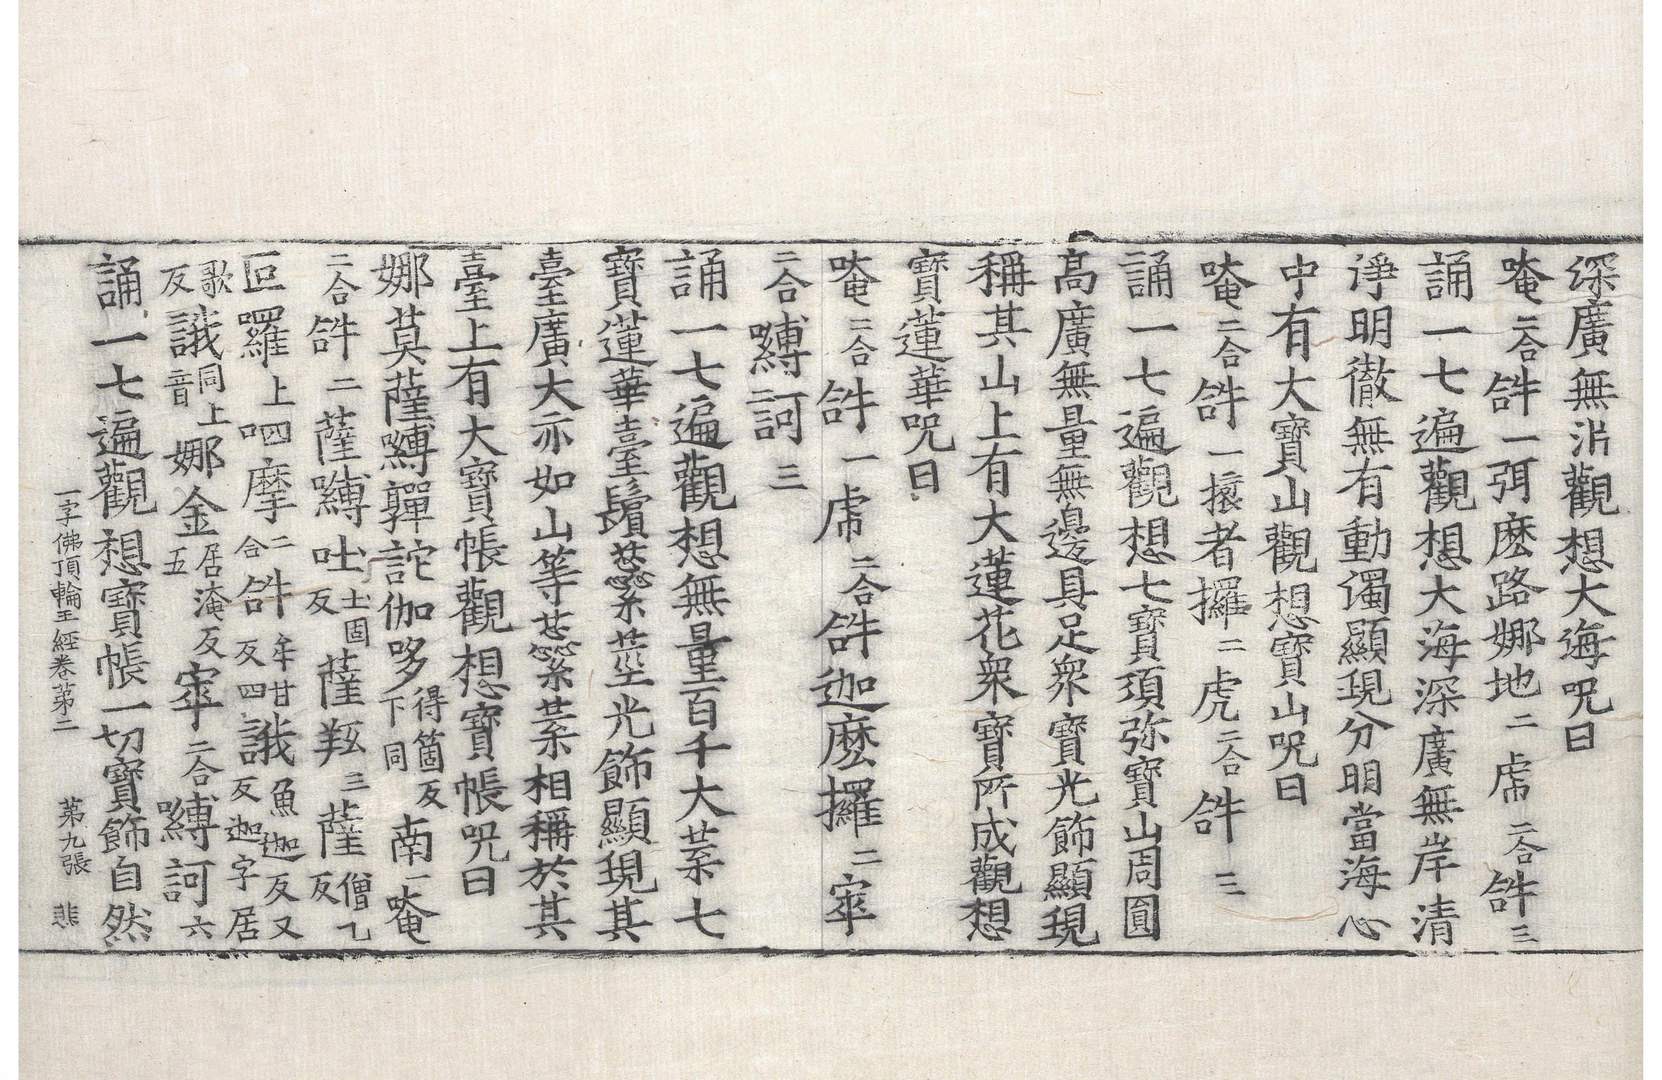 深廣無涯觀想大海呪曰
唵二合𤙖一弭麽路娜地二虎二合𤙖三
誦一七遍觀想大海深廣無岸清
淨明徹無有動濁顯現分明當海心
中有大寶山觀想寶山呪曰
唵二合𤙖一擯者攞二虎二合𤙖三
誦一七遍觀想七寶須弥寶山周圓
高廣無量無邊具足衆寶光飾顯現
稱其山上有大蓮花衆寶所成觀想
寶蓮華呪曰
唵二合𤙖一虎二合𤙖迦麽攞二窣
二合嚩二訶三
誦一七遍觀想無量百千大葉七
寶蓮華臺鬚蘂莖光飾顯現其
臺廣大亦如山等蘂葉相稱於其
臺上有大寶帳觀想寶帳呪曰
娜莫薩嚩韗詑伽哆得箇反下同南一唵
二合𤙖二薩嚩吐士固反薩羝三薩僧乙反
叵囉上四呬摩二合𤙖牟甘反四誐魚迦反又迦字居
歌反誐同上音娜金居淹反五窣二合嚩訶六
誦一七遍觀想寶帳一切寶飾自然
一字佛頂輪王經卷第二 第九張 悲